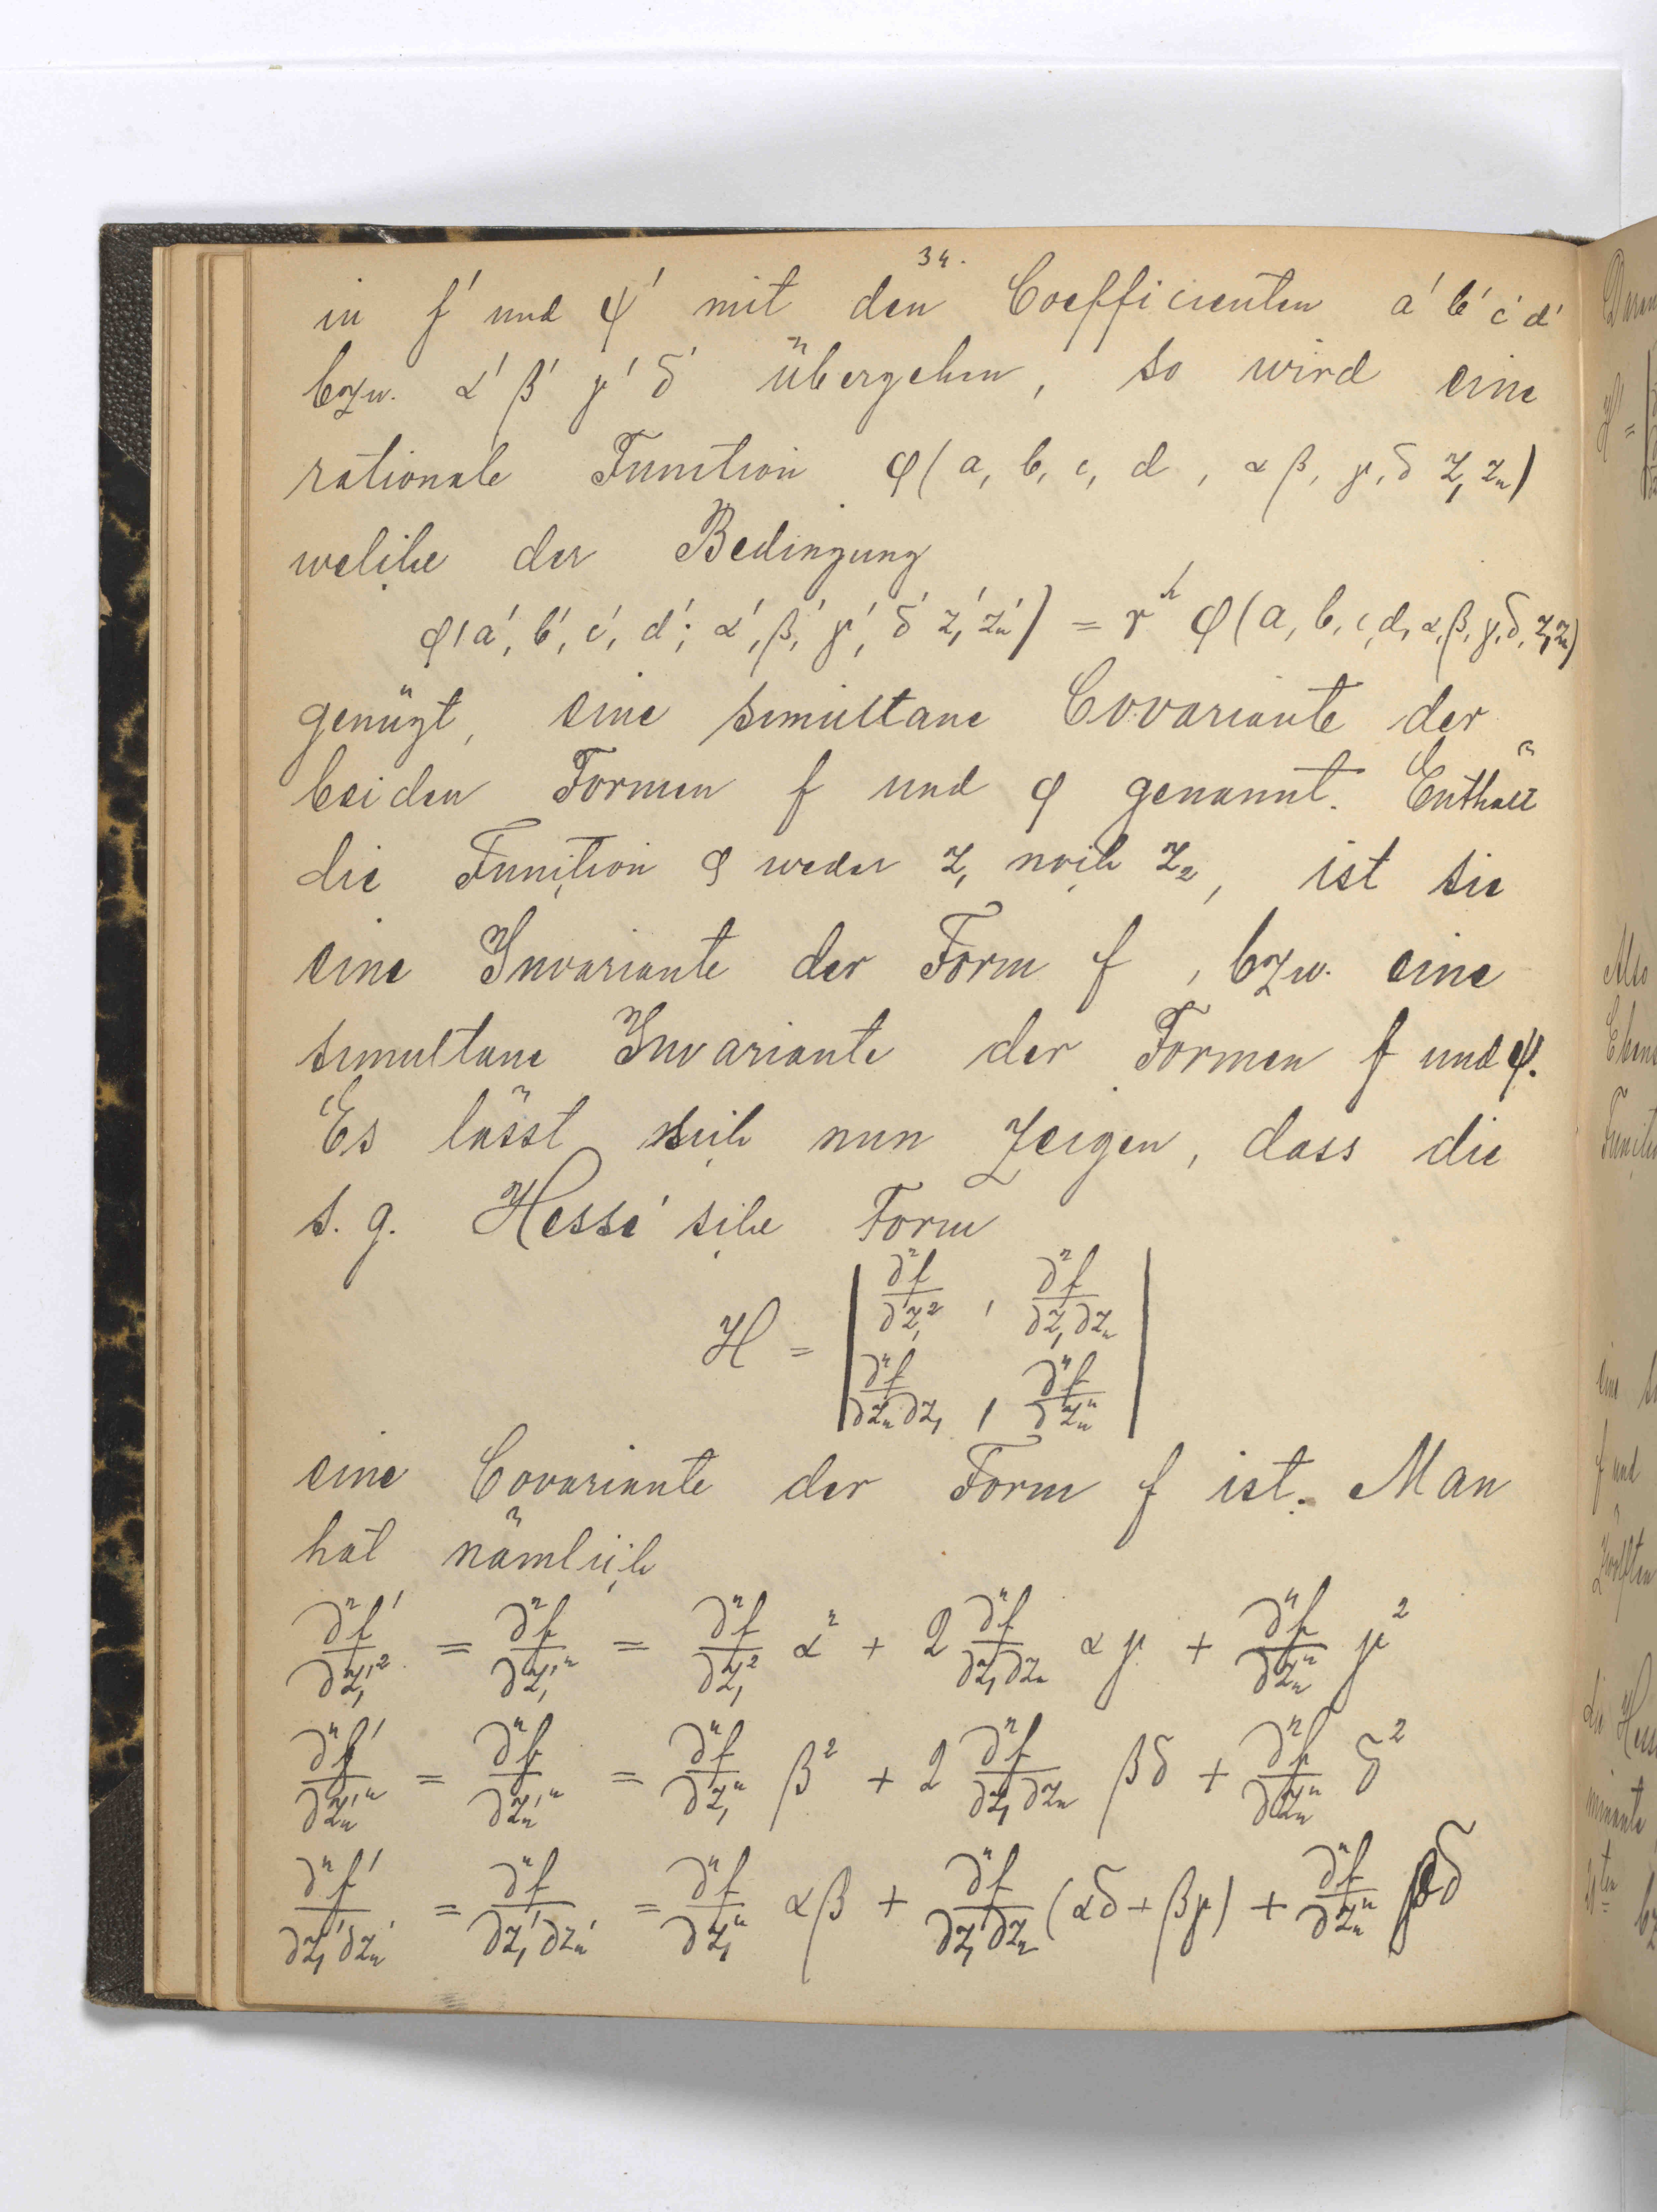 34.
in f' und ψ' mit den Coefficienten a' b' c' d'
bzw. α' β' γ' δ' übergehen, so wird eine
rationale Function φ(a, b, c, d, α β, γ, δ z₁ z₂)
welche der Bedingung
φ(a', b', c', d'; α', β', γ', δ' z₁' z₂') = r^h φ(a, b, c, d, α, β, γ, δ, z₁ z₂)
genügt, eine simultane Covariante der
beiden Formen f und φ genannt. Enthält
die Function φ weder z₁ noch z₂, ist sie
eine Invariante der Form f, bzw. eine
simultane Invariante der Formen f und ψ.
Es lässt sich nun zeigen, dass die
s. g. Hesse'sche Form
H = | ∂²f/∂z₁² , ∂²f/∂z₁∂z₂ |
| ∂²f/∂z₂∂z₁ , ∂²f/∂z₂² |
eine Covariante der Form f ist. Man
hat nämlich
∂²f'/∂z₁'² = ∂²f/∂z₁'² = ∂²f/∂z₁² α² + 2 ∂²f/∂z₁∂z₂ αγ + ∂²f/∂z₂² γ²
∂²f'/∂z₂'² = ∂²f/∂z₂'² = ∂²f/∂z₁² β² + 2 ∂²f/∂z₁∂z₂ βδ + ∂²f/∂z₂² δ²
∂²f'/∂z₁'∂z₂' = ∂²f/∂z₁'∂z₂' = ∂²f/∂z₁² αβ + ∂²f/∂z₁∂z₂ (αδ + βγ) + ∂²f/∂z₂² γδ